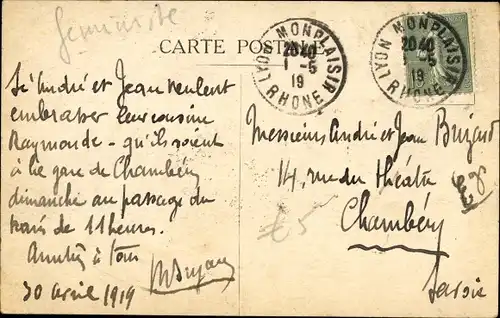 Féministe
CARTE POSTALE
LYON MONPLAISIR
20 40
1 -5
19
RHONE
LYON MONPLAISIR
20 40
1 -5
19
RHONE
Si André et Jean veulent
embrasser leur cousine
Raymonde - qu'ils soient
à la gare de Chambéry
dimanche au passage du
train de 11 heures.
Amitiés à tous
30 avril 1919
Messieurs André et Jean
14, rue du théâtre
Chambéry
Savoie
£5